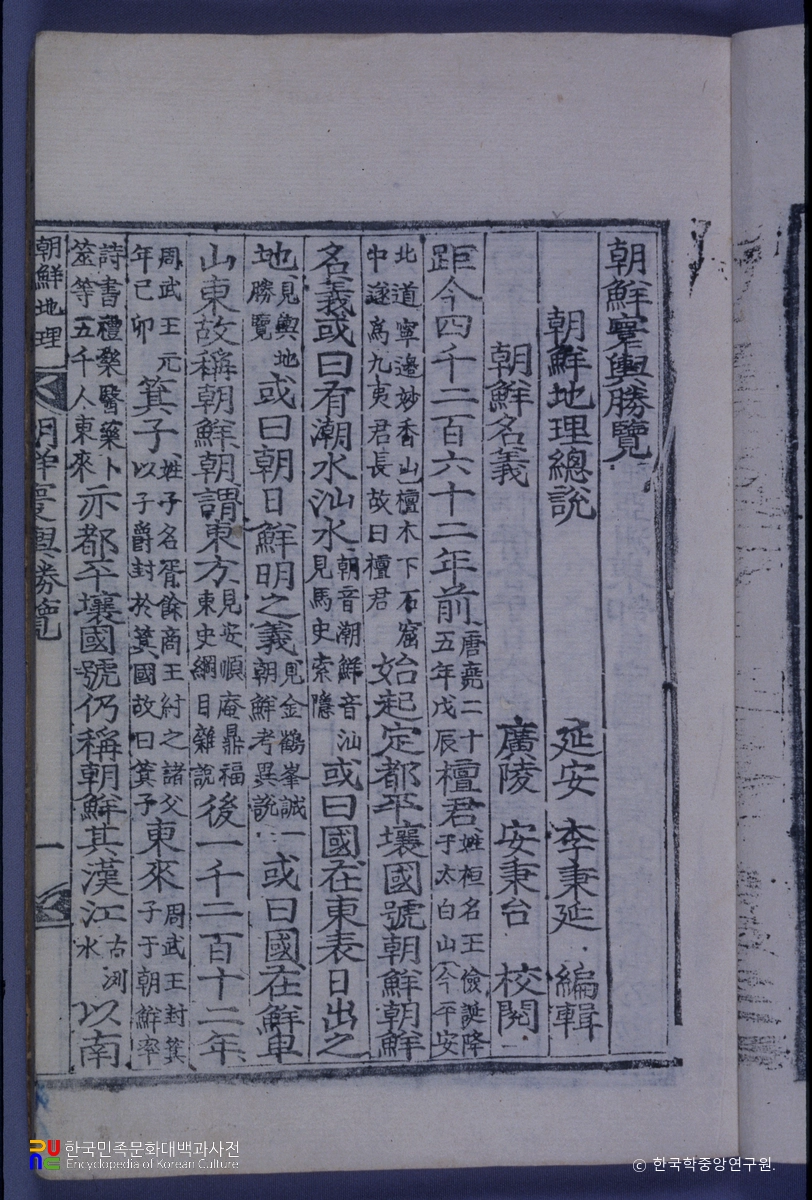 朝鮮寰輿勝覽
朝鮮地理總說 延安 李秉延 編輯
朝鮮名義 廣陵 安秉台 校閱
距今四千二百六十二年前唐堯二十五年戊辰檀君姓桓名王儉誕降于太白山(今平安
北道寧邊妙香山)檀木下石窟中遂爲九夷君長故曰檀君始起定都平壤國號朝鮮朝鮮
名義或曰有潮水汕水朝音潮鮮音汕見馬史索隱或曰國在東表日出之
地見輿地勝覽或曰朝日鮮明之義見金鶴峯誠一朝鮮考異說或曰國在鮮卑
山東故稱朝鮮朝謂東方見安順庵鼎福東史綱目雜說後一千二百十二年
周武王元年己卯箕子姓子名胥餘商王紂之諸父以子爵封於箕國故曰箕子東來周武王封箕子于朝鮮率
詩書禮樂醫藥卜筮等五千人東來亦都平壤國號仍稱朝鮮其漢江古洌水以南
朝鮮地理 朝鮮寰輿勝覽 一
한국민족문화대백과사전
Encyclopedia of Korean Culture
© 한국학중앙연구원.